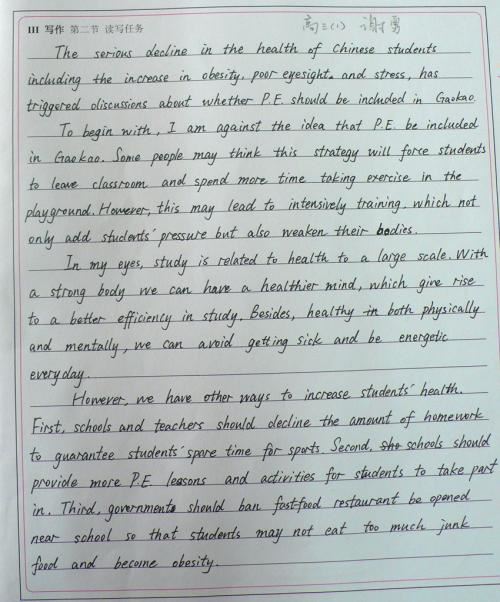 III 写作 第二节 读写任务
高三(1) 谢勇
The serious decline in the health of Chinese students
including the increase in obesity, poor eyesight, and stress, has
triggered discussions about whether P.E. should be included in Gaokao.
To begin with, I am against the idea that P.E. be included
in Gaokao. Some people may think this strategy will force students
to leave classroom and spend more time taking exercise in the
playground. However, this may lead to intensively training, which not
only add students' pressure but also weaken their bodies.
In my eyes, study is related to health to a large scale. With
a strong body we can have a healthier mind, which give rise
to a better efficiency in study. Besides, healthy in both physically
and mentally, we can avoid getting sick and be energetic
everyday.
However, we have other ways to increase students' health.
First, schools and teachers should decline the amount of homework
to guarantee students' spare time for sports. Second, schools should
provide more P.E. lessons and activities for students to take part
in. Third, governments should ban fastfood restaurant be opened
near school so that students may not eat too much junk
food and become obesity.